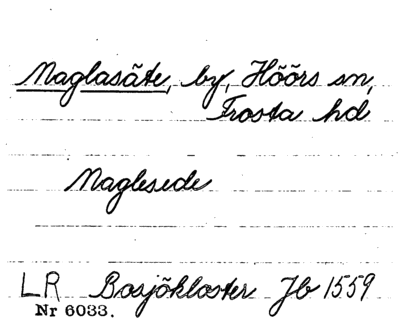 Maglasäte, by, Höörs sn,
Frosta hd
Magleside
LR Bosjökloster Jb 1559
Nr 6033.